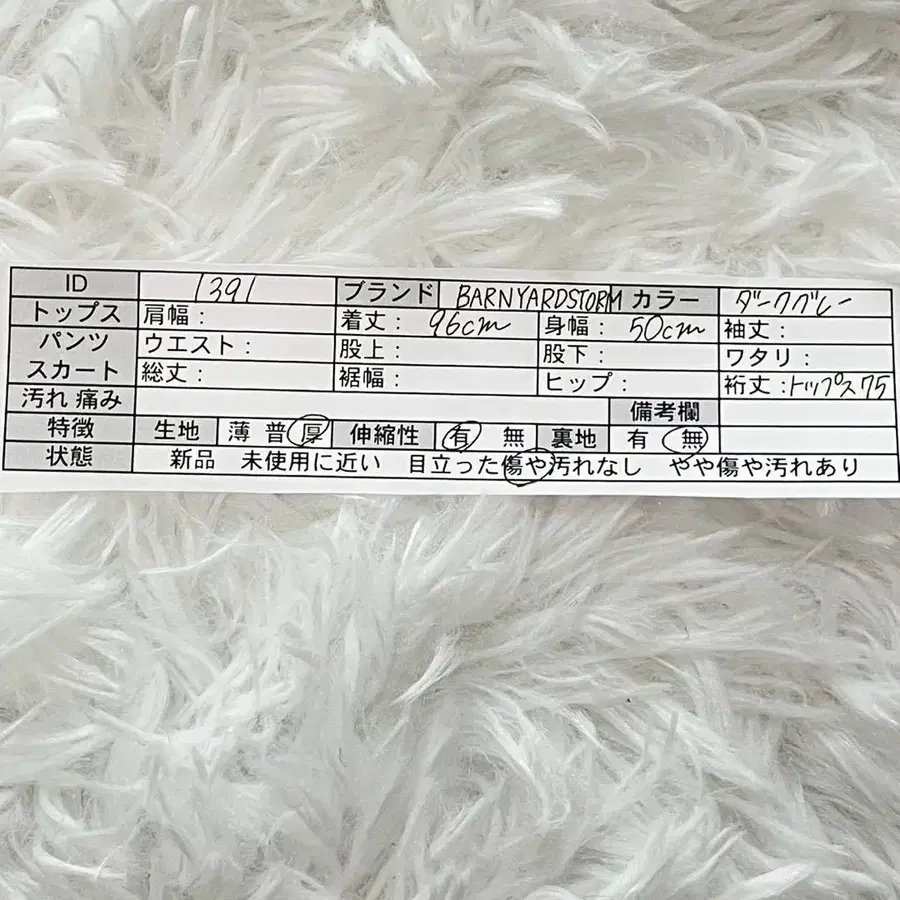 ID 1391 ブランド BARNYARDSTORM カラー ダークグレー
トップス 肩幅： 着丈： 96cm 身幅： 50cm 袖丈：
パンツ スカート ウエスト： 股上： 股下： ワタリ：
総丈： 裾幅： ヒップ： 裄丈：トップス75
汚れ 痛み 備考欄
特徴 生地 薄 普 厚 伸縮性 有 無 裏地 有 無
状態 新品 未使用に近い 目立った傷や汚れなし やや傷や汚れあり